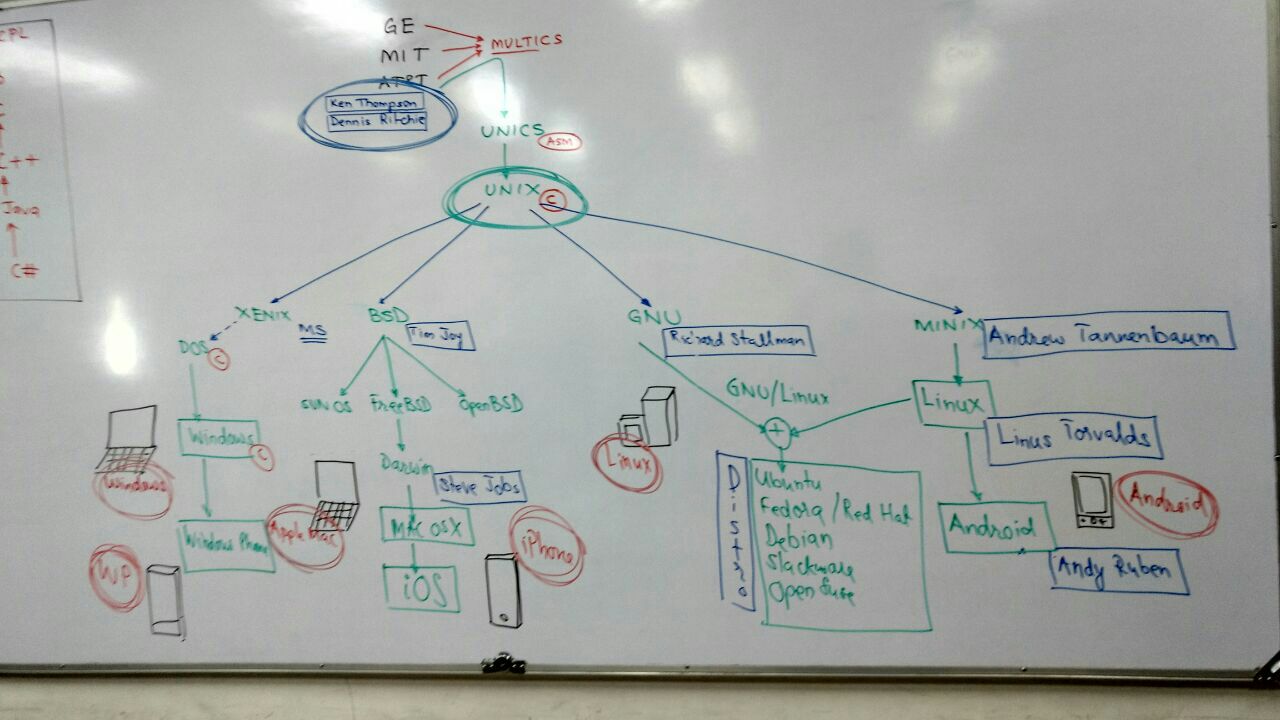 GE
MIT
AT&T
MULTICS
Ken Thompson
Dennis Ritchie
UNICS
ASM
UNIX
C
CPL
C++
Java
C#
XENIX
MS
DOS
C
Windows
C
Windows
Windows Phone
WP
BSD
Tim Joy
SUNOS
FreeBSD
OpenBSD
Darwin
Steve Jobs
Apple Mac
MAC OSX
iOS
iPhone
GNU
Richard Stallman
GNU/Linux
+
Linux
Distro
Ubuntu
Fedora /Red Hat
Debian
Slackware
Open Suse
MINIX
Andrew Tannenbaum
Linux
Linus Torvalds
Android
Andy Ruben
Android